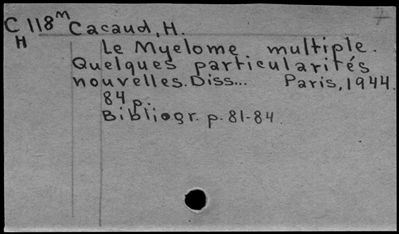 C 118ᵐ Cacaud, H.
H
Le Myelome multiple.
Quelques particularités
nouvelles. Diss... Paris, 1944.
84 p.
Bibliogr. p. 81-84